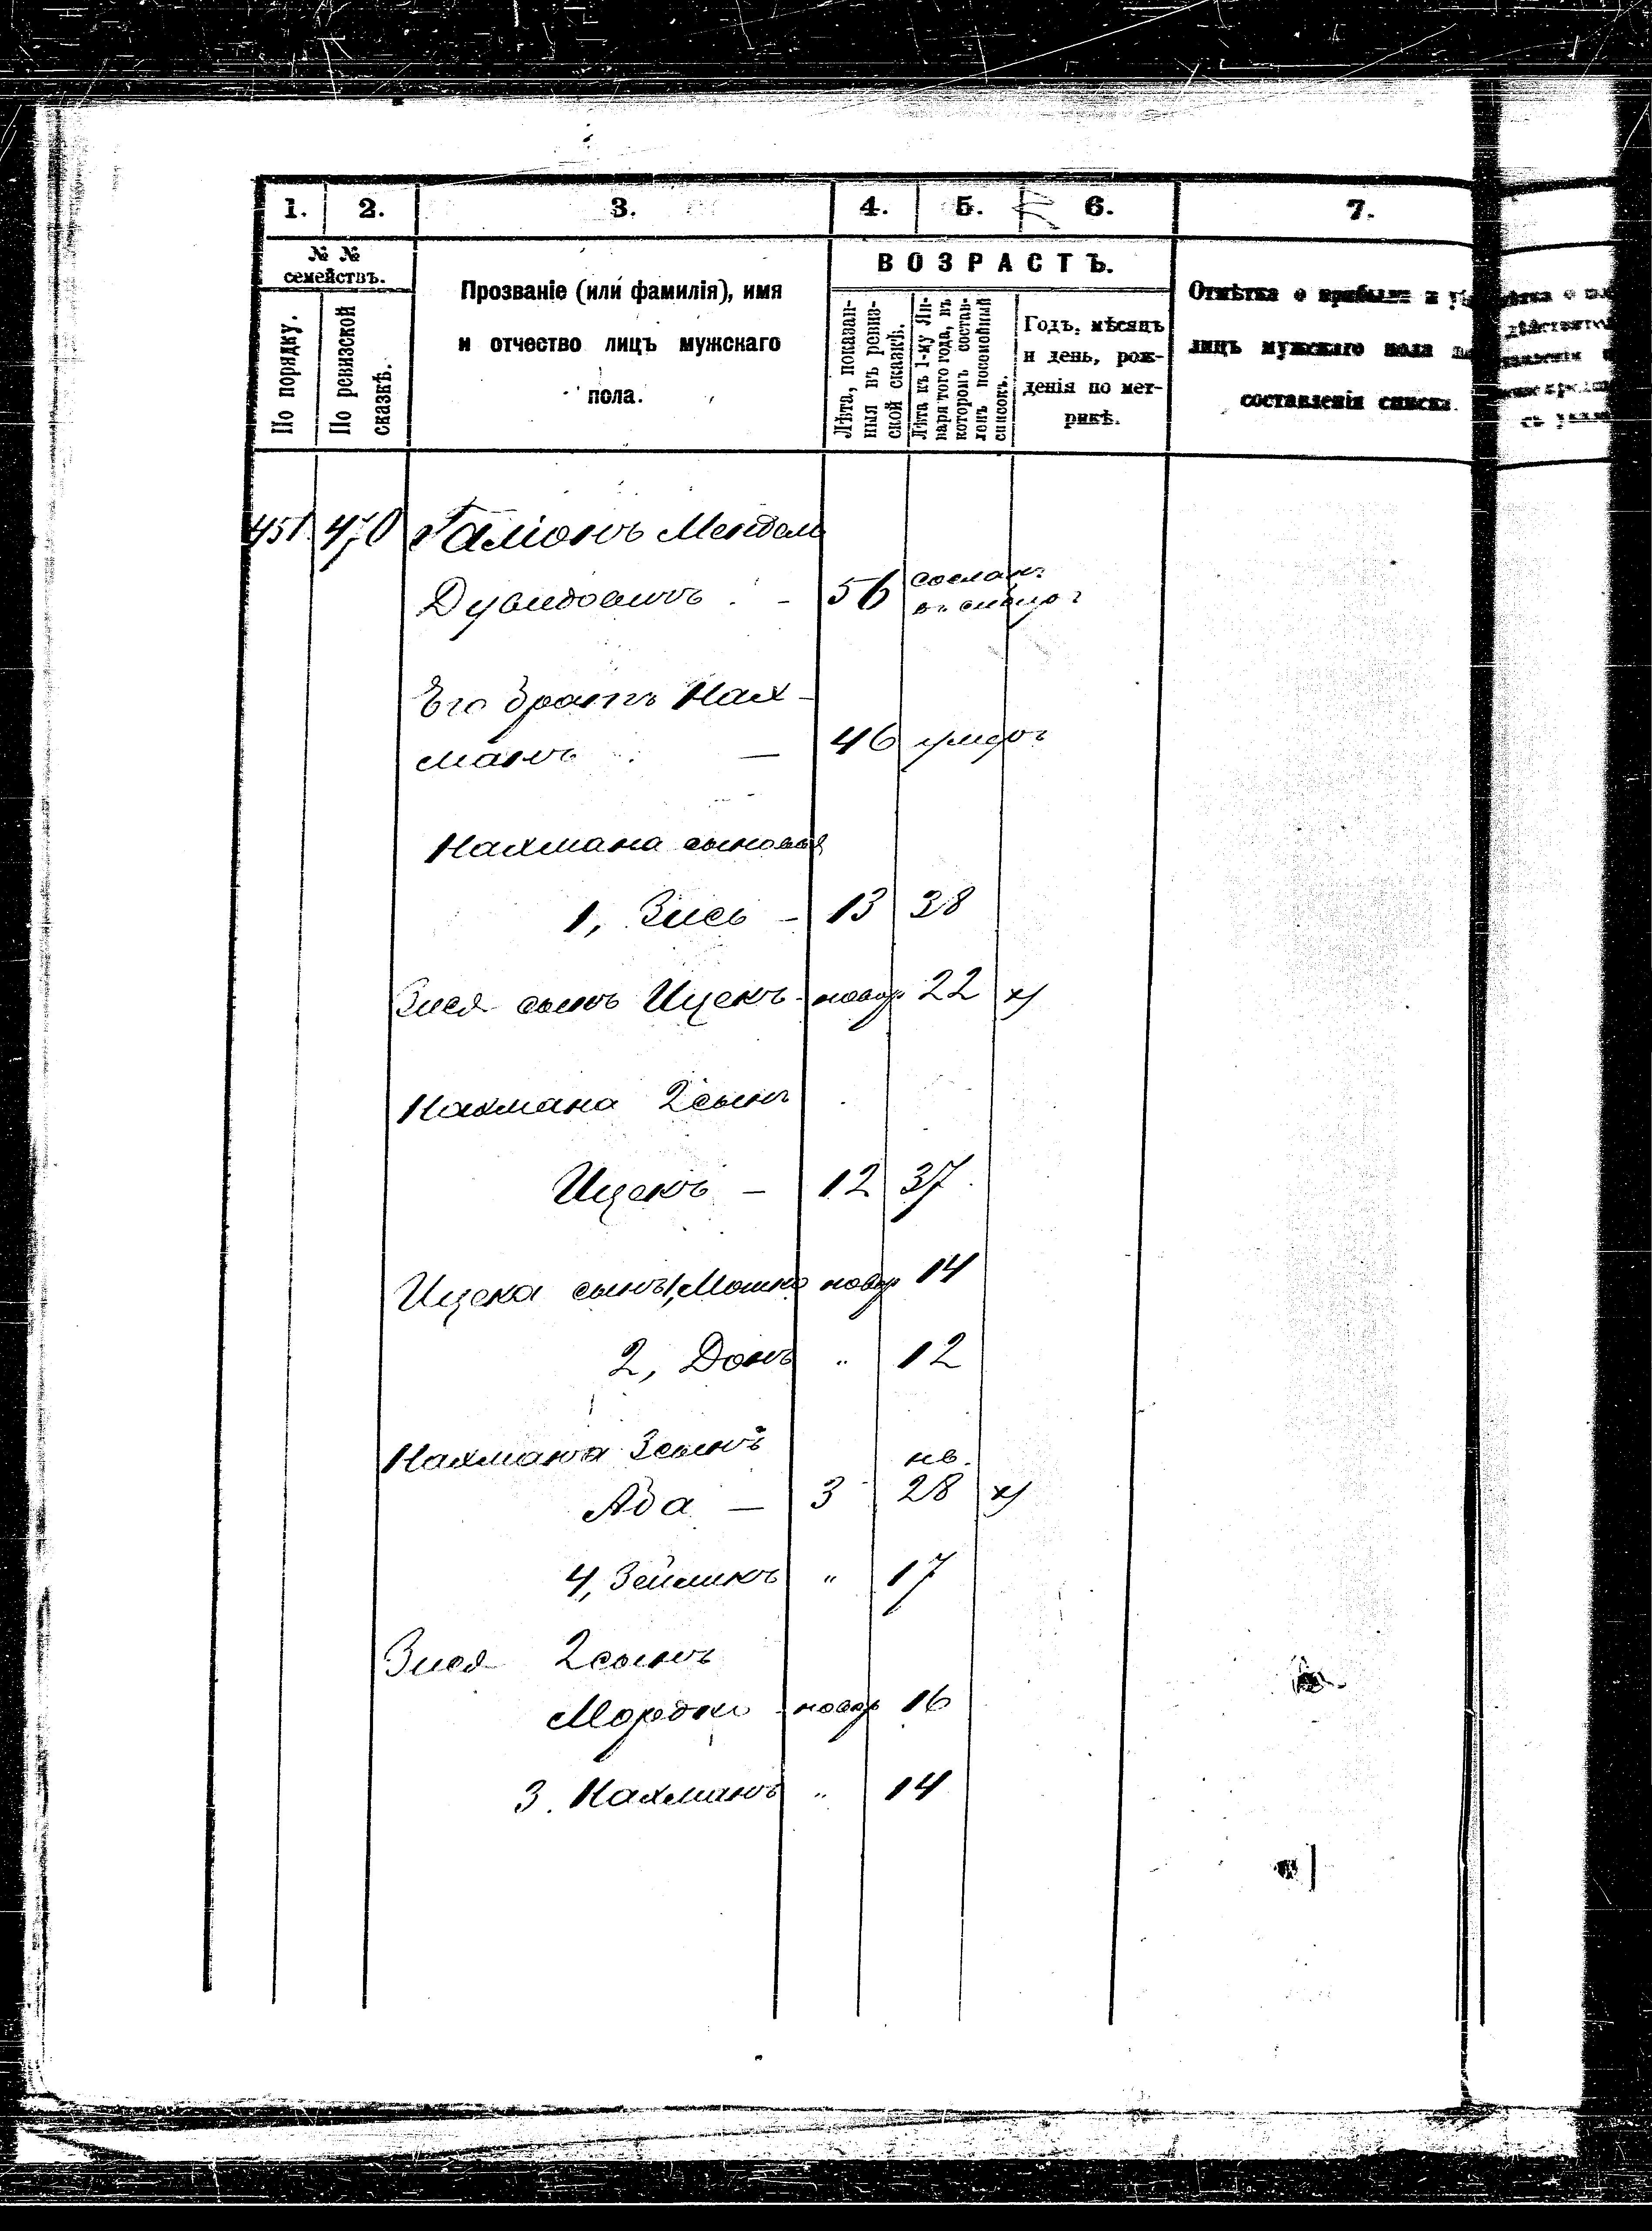 1. 2. 3. 4. 5. 6. 7.
№ №
семействъ.
По порядку.
По ревизской
сказкѣ.
Прозваніе (или фамилія), имя
и отчество лицъ мужскаго
пола.
ВОЗРАСТЪ.
Лѣта, показан-
ныя въ ревиз-
ской сказкѣ.
Лѣта къ 1-му Ян-
варя того года, въ
которомъ состав-
ленъ посемейный
списокъ.
Годъ, мѣсяцъ
и день, рож-
денія по мет-
рикѣ.
Отмѣтка о прибыли и
лицъ мужскаго пола
составленія списка.
451 470 Галіонъ Мендель
Дувидовичъ - 56 сослан.
въ
Его братъ Нах-
манъ — 46 умеръ
Нахмана сыновья
1, Зись - 13 38
Зися сынъ Ицекъ - новор 22 х)
Нахмана 2 сынъ
Ицекъ — 12 37
Ицека сынъ 1, Мошко новор 14
2, Донъ " 12
Нахмана 3 сынъ нв.
Аба — 3 28 х)
4, Зейликъ " 17
Зися 2 сынъ
Мордко - новор 16
3. Нахманъ " 14